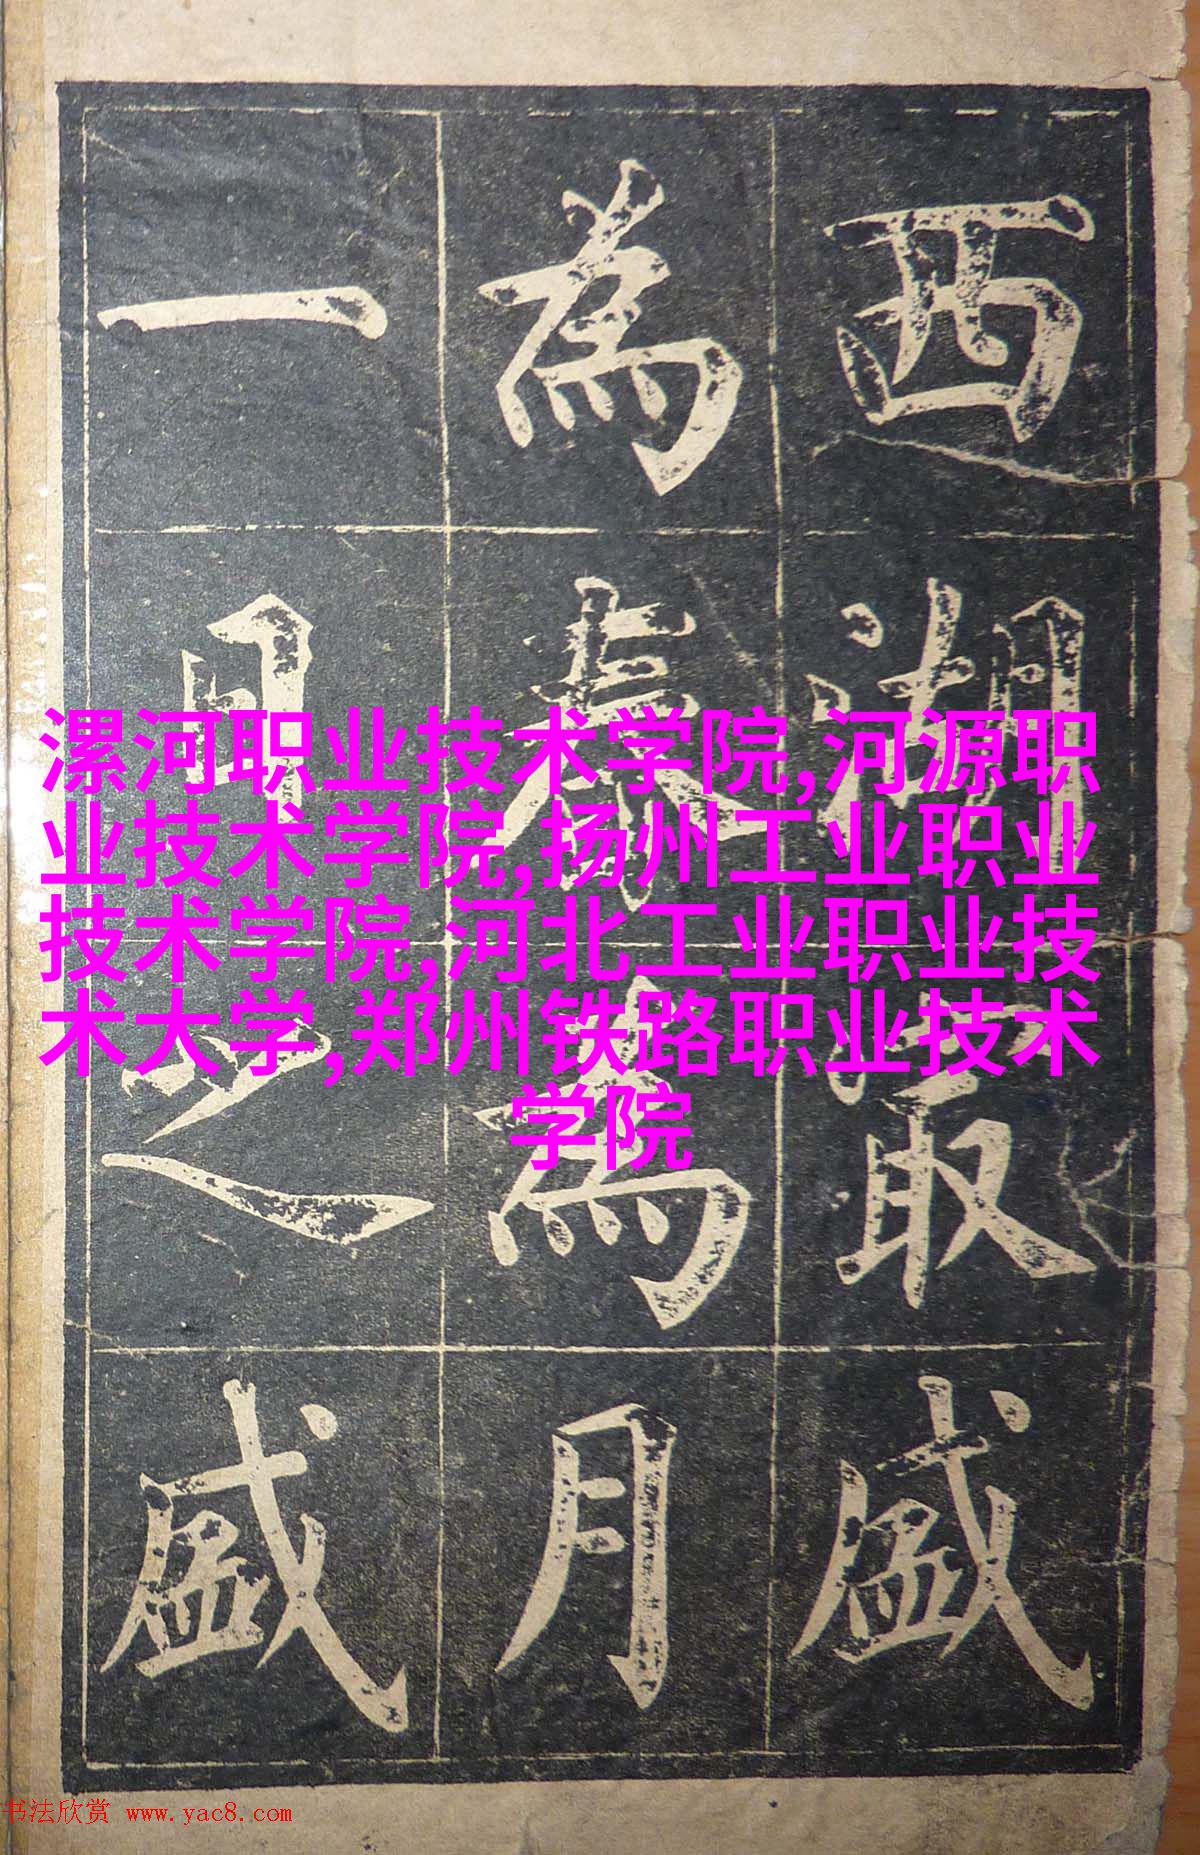 西湖最盛
為春為月
一日之盛
漯河职业技术学院,河源职
业技术学院,扬州工业职业
技术学院,河北工业职业技
术大学,郑州铁路职业技术
学院
书法欣赏 www.yac8.com